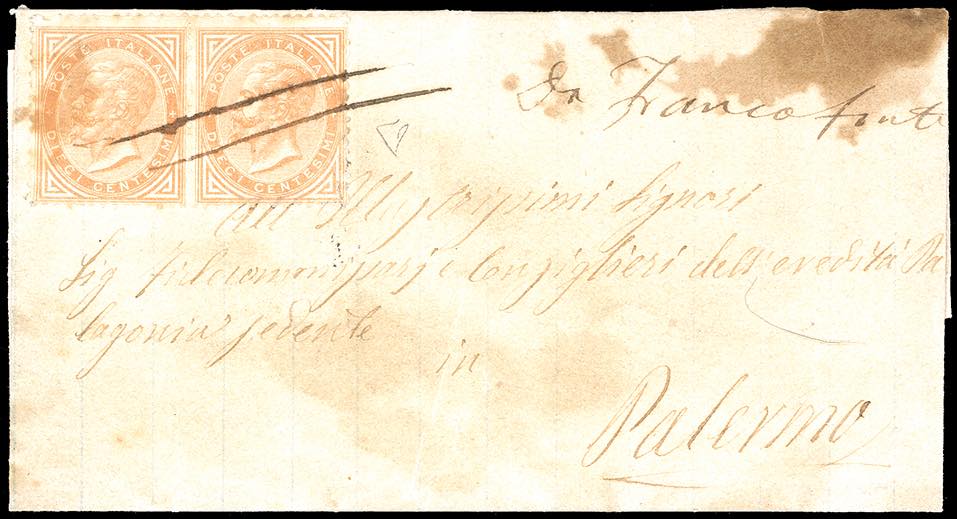 POSTE ITALIANE
DIECI CENTESIMI
POSTE ITALIANE
DIECI CENTESIMI
Da Francofonte
All Illustrissimi Signori
Sig Fidecommissarj e Consiglieri dell'eredità Pa
lagonia sedente
in
Palermo